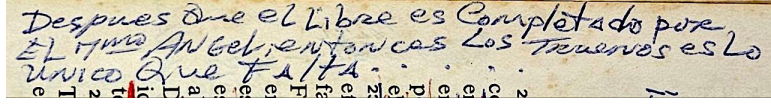 Despues Que el Libre es Completado por
EL 7mo ANGEL, entonces Los Truenos es Lo
UNICO QUe FALTA. . . . .